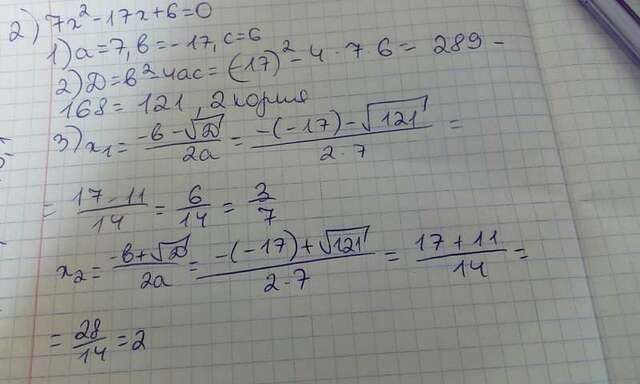 2) 7x² - 17x + 6 = 0
1) a = 7, b = -17, c = 6
2) D = b² - 4ac = (-17)² - 4 · 7 · 6 = 289 -
168 = 121, 2 корня
3) x₁ = (-b - √D) / 2a = (-(-17) - √121) / (2 · 7) =
= (17 - 11) / 14 = 6/14 = 3/7
x₂ = (-b + √D) / 2a = (-(-17) + √121) / (2 · 7) = (17 + 11) / 14 =
= 28/14 = 2